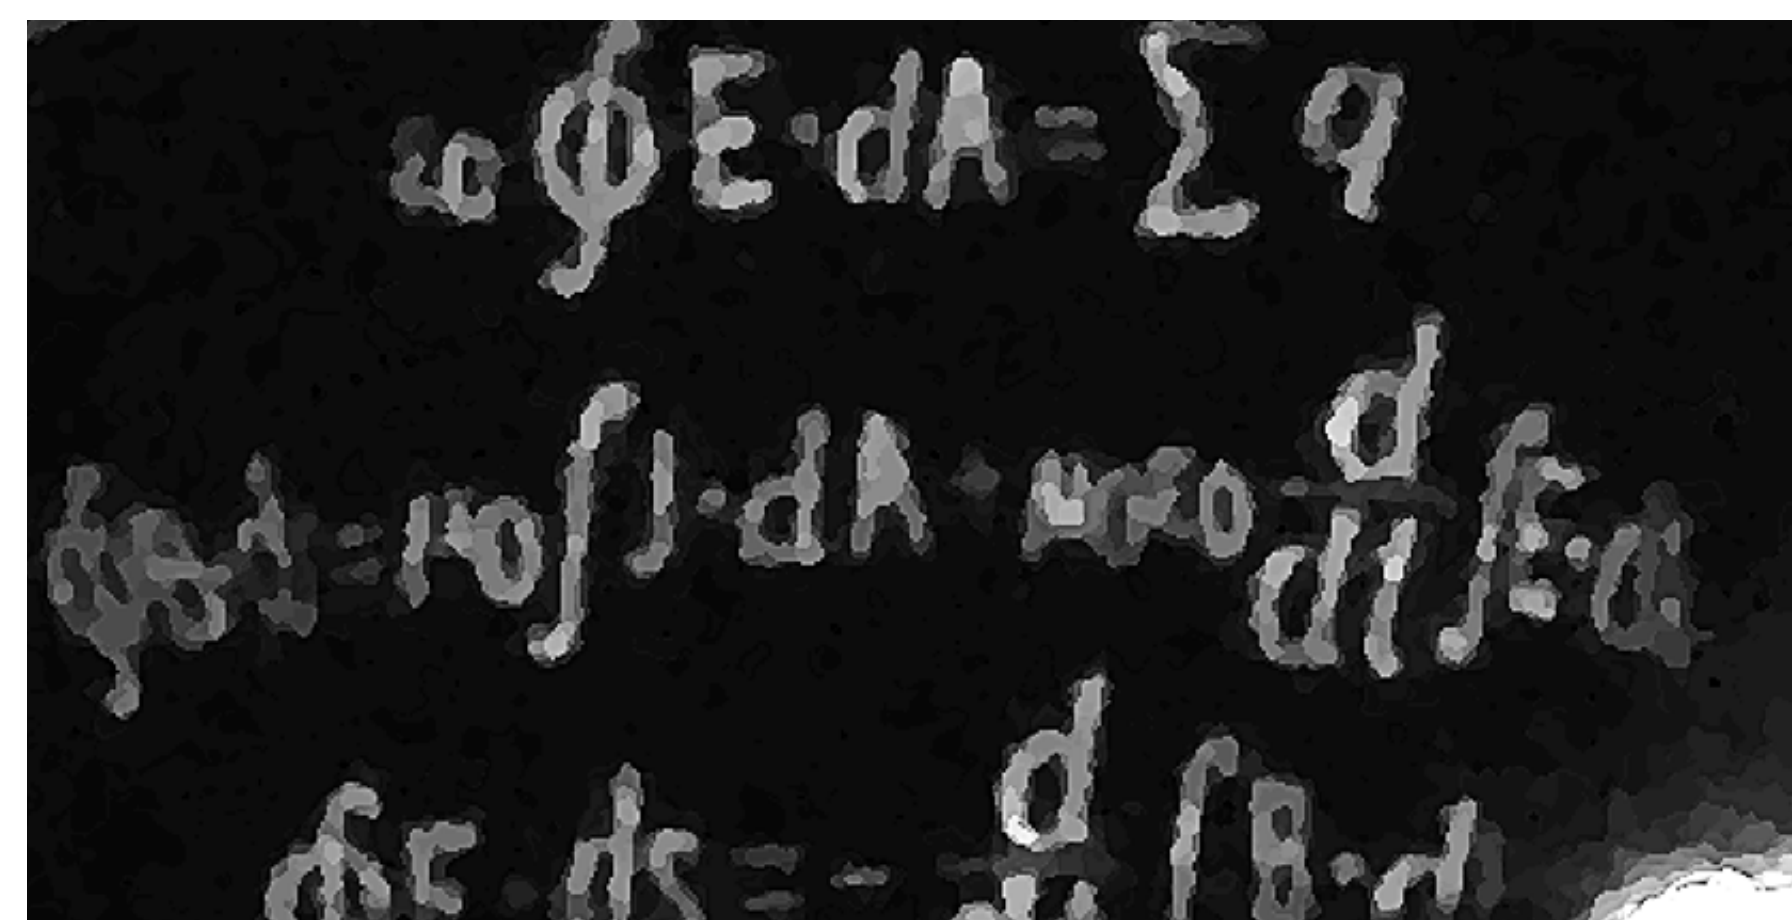 ε0 ∮ E · dA = Σ q
∮ B · d = μ0 ∫ J · dA + μ0ε0 d/dt ∫ E · d
∮ E · ds = - d/dt ∫ B · d